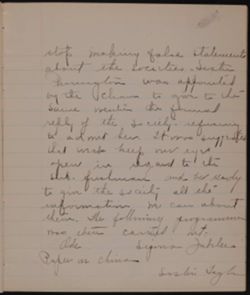 stop making false statements
about the societies. Justin
was appointed
by the Chair to give to the
same mentioned the formal
reply of the Society refusing
to admit her. It was suggested
that we keep our eyes
open in regard to the
sub. freshman and be ready
to give the society all the
information we can about
them. The following programme
was then carried out.
Ode Sigma Jubilee
Paper on China